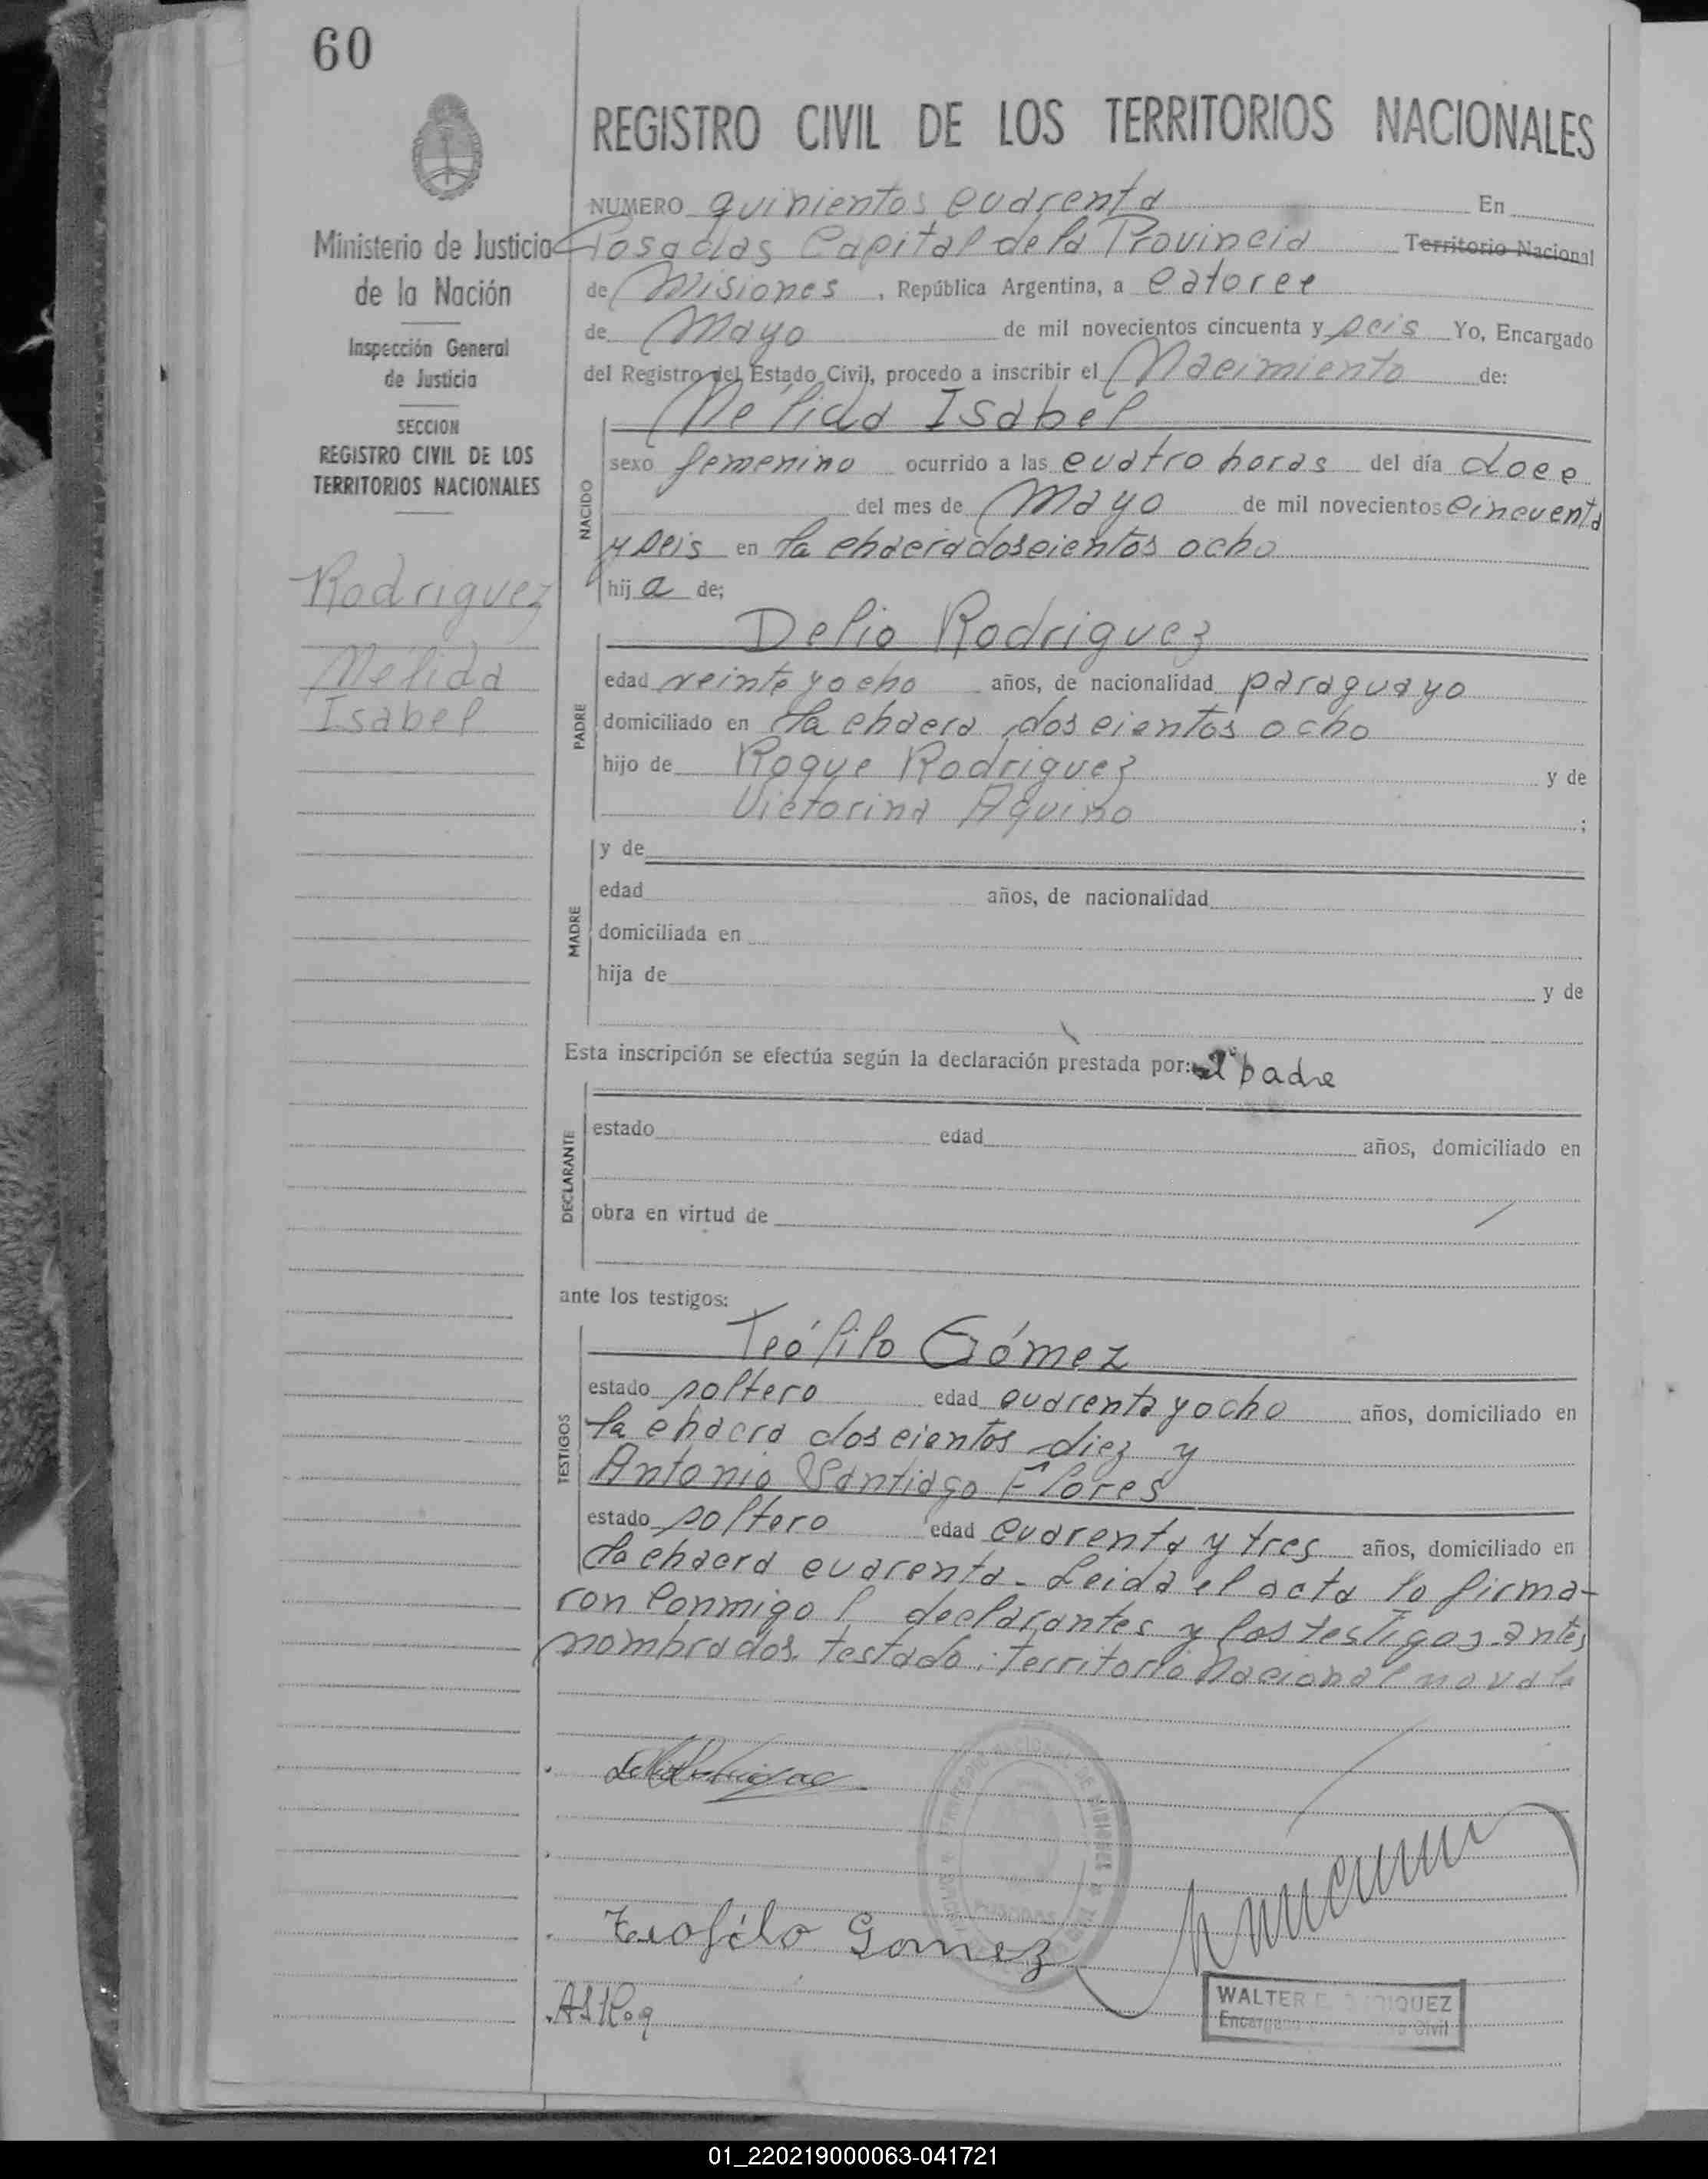 60
REGISTRO CIVIL DE LOS TERRITORIOS NACIONALES
Ministerio de Justicia
de la Nación
Inspección General
de Justicia
SECCION
REGISTRO CIVIL DE LOS
TERRITORIOS NACIONALES
Rodriguez
Melida
Isabel
NUMERO quinientos cuarenta En
Posadas Capital de la Provincia Territorio Nacional
de Misiones, República Argentina, a catorce
de Mayo de mil novecientos cincuenta y seis Yo, Encargado
del Registro del Estado Civil, procedo a inscribir el Nacimiento de:
Isabel
NACIDO
sexo femenino ocurrido a las cuatro horas del día doce
del mes de Mayo de mil novecientos cincuenta
y seis en la chacra doscientos ocho
hija de;
Delio Rodriguez
PADRE
edad veinte y ocho años, de nacionalidad paraguayo
domiciliado en la chacra doscientos ocho
hijo de Roque Rodriguez y de
Victorina Aquino ;
MADRE
y de
edad años, de nacionalidad
domiciliada en
hija de y de
Esta inscripción se efectúa según la declaración prestada por: el padre
DECLARANTE
estado edad años, domiciliado en
obra en virtud de
ante los testigos:
TESTIGOS
Teófilo Gómez
estado soltero edad cuarenta y ocho años, domiciliado en
la chacra doscientos diez y
Antonio Santiago Flores
estado soltero edad cuarenta y tres años, domiciliado en
la chacra cuarenta. Leida el acta la firma-
ron conmigo l declarantes y los testigos antes
nombrados. testado: Territorio Nacional no vale
Teofilo Gomez
WALTER
Encargado Civil
01_220219000063-041721